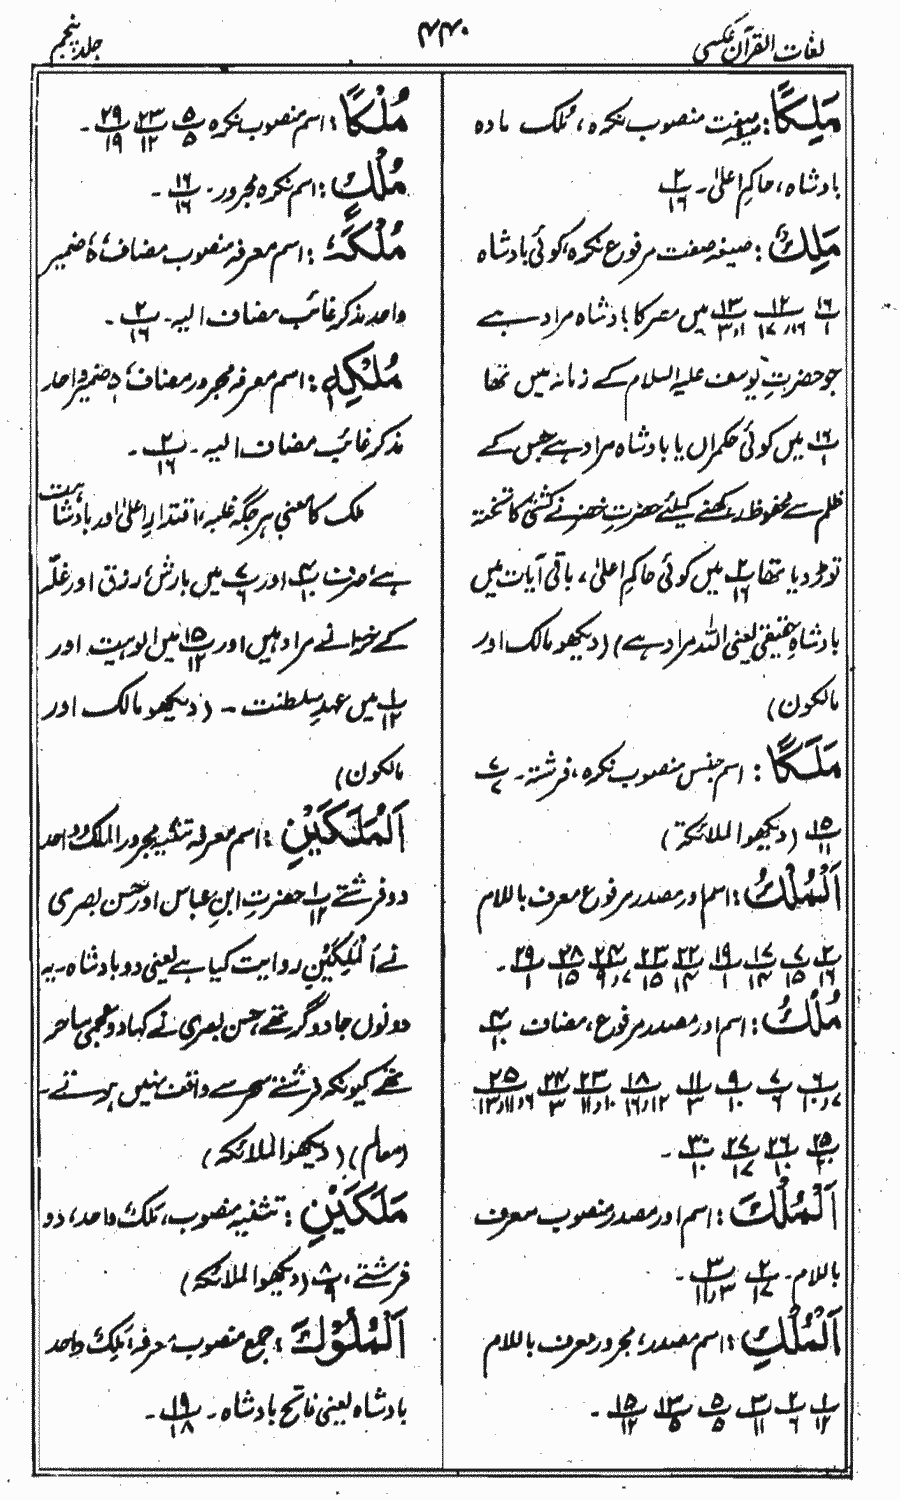 لغات القرآن عکسی
۴۴۰
جلد پنجم
مَلِكًا: صیغۂ صفت منصوب نکرہ، مُلک مادہ
بادشاہ، حاکمِ اعلیٰ۔ ۲/۱۶
مَلِكٌ: صیغہ صفت مرفوع نکرہ، کوئی بادشاہ
۱۶/۱ ۱۲/۱۶،۱۷ ۱۳/۱،۳ میں مصر کا بادشاہ مراد ہے
جو حضرتِ یوسف علیہ السلام کے زمانہ میں تھا
۱۶/۱ میں کوئی حکمراں یا بادشاہ مراد ہے جس کے
ظلم سے محفوظ رکھنے کیلئے حضرتِ خضر نے کشتی کا تختہ
توڑ دیا تھا ۲/۱۶ میں کوئی حاکمِ اعلیٰ، باقی آیات میں
بادشاہِ حقیقی یعنی اللہ مراد ہے) (دیکھو مالک اور
مالکون)
مَلَكًا: اسم جنس منصوب نکرہ، فرشتۃ۔ ۷/۷
۱۵/۱۱ (دیکھو الملائکۃ)
اَلْمُلْكُ: اسم اور مصدر مرفوع معرف باللام
۲/۱۶ ۷/۱۵ ۱۷/۱۴ ۱۹/۱ ۲۲/۱۴ ۲۳/۱۵ ۲۴/۷،۹ ۲۸/۱۵ ۲۹/۱۔
مُلْكُ: اسم اور مصدر مرفوع، مضاف ۴/۱۰
۶/۷،۱۰ ۷/۶ ۹/۱۰ ۱۱/۳ ۱۸/۱۲،۱۶ ۲۳/۱۰،۱۱ ۲۴/۳ ۲۵/۶،۱۱،۱۳
۲۵/۲۰ ۲۶/۱۰ ۲۷/۱۷ ۳۰/۱۰۔
اَلْمُلْكَ: اسم اور مصدر منصوب معرف
باللام۔ ۲/۱۷ ۳/۳،۱۱۔
اَلْمُلْكِ: اسم مصدر، مجرور معرف باللام
۱/۱۲ ۲/۶ ۳/۱۱ ۵/۵ ۱۳/۵ ۱۵/۱۲۔
مُلْكًا: اسم منصوب نکرہ ۵/۵ ۲۳/۱۲ ۲۹/۱۹۔
مُلْكٍ: اسم نکرہ مجرور۔ ۱۶/۱۶۔
مُلْكَهٗ: اسم معرفہ منصوب مضاف، ہٗ ضمیر
واحد مذکر غائب مضاف الیہ۔ ۲/۱۶۔
مُلْكِهٖ: اسم معرفہ مجرور مضاف، ہٖ ضمیر واحد
مذکر غائب مضاف الیہ۔ ۲/۱۶۔
ملک کا معنی ہر جگہ غلبہ، اقتدارِ اعلیٰ اور بادشاہت
ہے، صرف ۴/۱ اور ۷/۶ میں بارش، رزق اور غلّہ
کے خزانے مراد ہیں اور ۱۵/۱۲ میں الوہیت اور
۱/۱۲ میں عہدِ سلطنت۔ (دیکھو مالک اور
مالکون)
اَلْمَلَكَيْنِ: اسم معرفہ تثنیہ مجرور الملک واحد
دو فرشتے ۱/۱۲ حضرتِ ابنِ عباس اور حسن بصری
نے اَلْمَلِكَيْنِ روایت کیا ہے یعنی دو بادشاہ۔ یہ
دونوں جادوگر تھے، حسن بصری نے کہا دو عجمی ساحر
تھے کیونکہ فرشتے سحر سے واقف نہیں ہوتے۔
(معالم) (دیکھو الملائکہ)
مَلَكَيْنِ: تثنیہ منصوب، مَلَكٌ واحد، دو
فرشتے، ۸/۹ (دیکھو الملائکہ)
اَلْمُلُوْكَ: جمع منصوب معرفہ، مَلِكٌ واحد
بادشاہ یعنی فاتح بادشاہ۔ ۱۹/۱۸۔